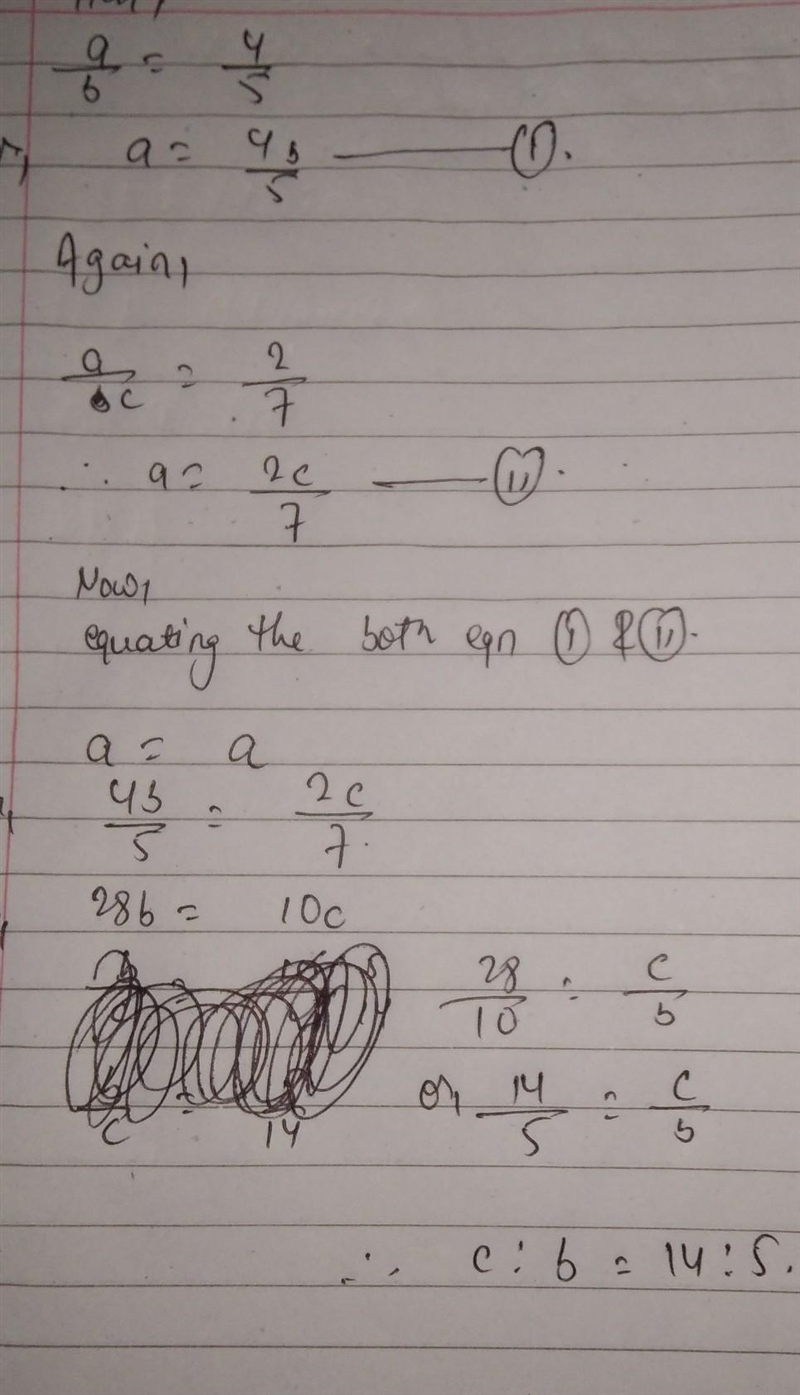 a/b = 4/5
a = 4b/5 —— (i).
Again,
a/c = 2/7
∴ a = 2c/7 —— (ii).
Now,
equating the both eqn (i) & (ii).
a = a
4b/5 = 2c/7
28b = 10c
28/10 = c/b
or, 14/5 = c/b
c 14
∴ c : b = 14 : 5.